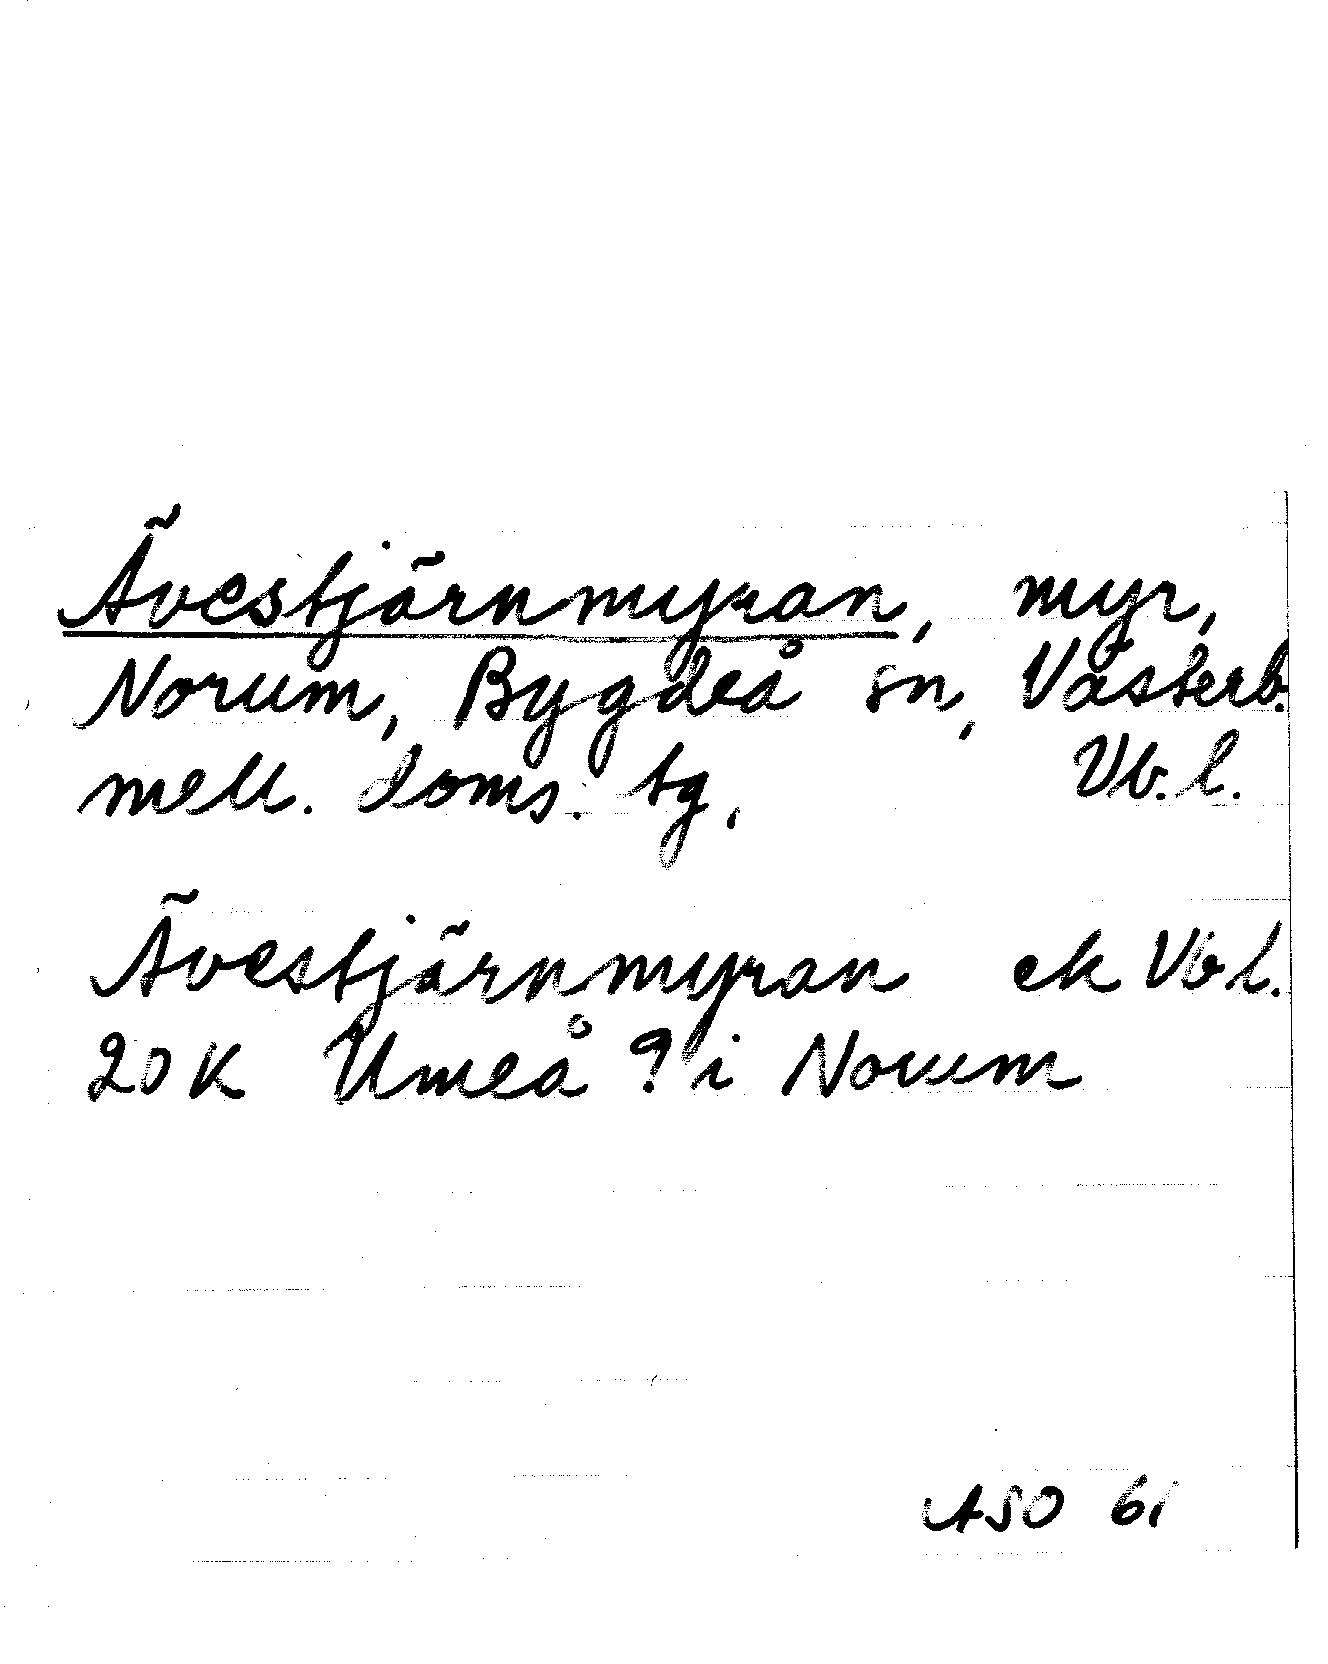 Ävestjärnmyran, myr,
Norum, Bygdeå sn, Västerb.
mell. doms. tg, Vb.l.
Ävestjärnmyran ek Vb l.
20 K Umeå 9 i Norum
ASO 61